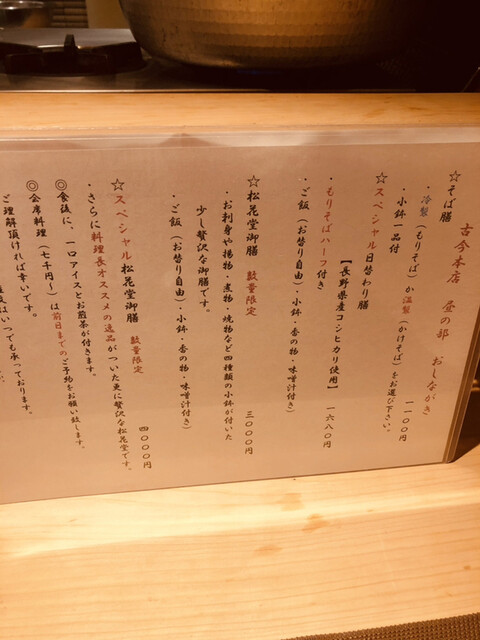 古今本店　昼の部　おしながき
☆そば膳　一一〇〇円
・冷製（もりそば）か温製（かけそば）をお選び下さい。
・小鉢一品付
☆スペシャル日替わり膳　一六八〇円
【長野県産コシヒカリ使用】
・もりそばハーフ付き
・ご飯（お替り自由）・小鉢・香の物・味噌汁付き）
☆松花堂御膳　数量限定　三〇〇〇円
・お刺身や揚物・煮物・焼物など四種類の小鉢が付いた
少し贅沢な御膳です。
・ご飯（お替り自由）・小鉢・香の物・味噌汁付き）
☆スペシャル松花堂御膳　数量限定　四〇〇〇円
・さらに料理長オススメの逸品がついた更に贅沢な松花堂です。
◎食後に、一口アイスとお煎茶が付きます。
◎会席料理（七千円〜）は前日までのご予約をお願い致します。
はいつでも承っております。
ご理解頂ければ幸いです。